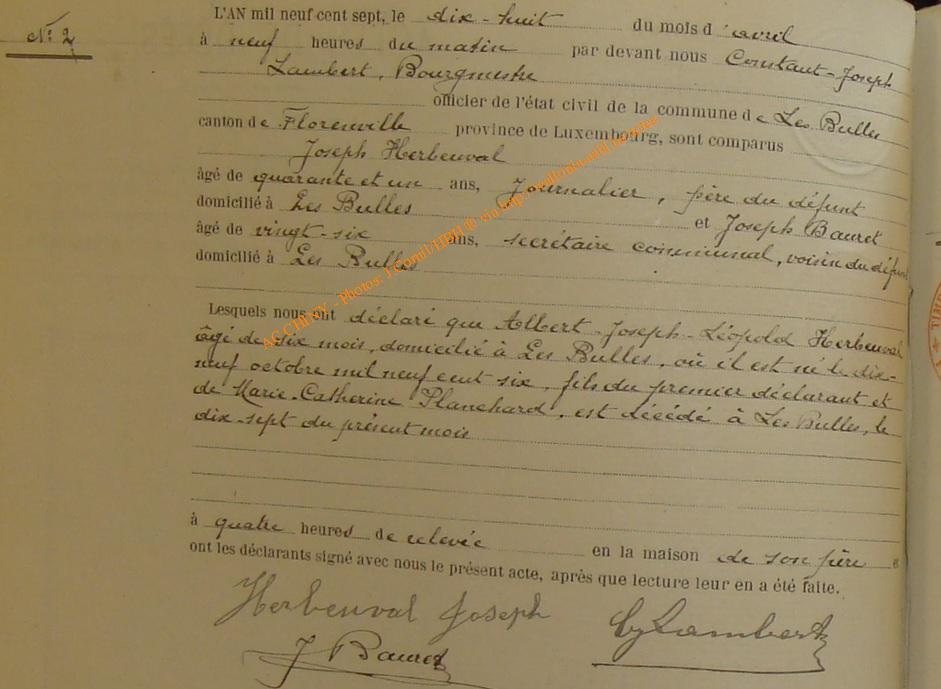 N° 2
L'AN mil neuf cent sept, le dix-huit du mois d'avril
à neuf heures du matin par devant nous Constant-Joseph
Lambert, Bourgmestre
officier de l'état civil de la commune de Les Bulles
canton de Florenville province de Luxembourg, sont comparus
Joseph Herbeuval
âgé de quarante et un ans, Journalier, père du défunt
domicilié à Les Bulles et Joseph Bauret
âgé de vingt-six ans, secrétaire communal, voisin du défunt
domicilié à Les Bulles
Lesquels nous ont déclaré que Albert-Joseph-Léopold Herbeuval
âgé de six mois, domicilié à Les Bulles, où il est né le dix-
neuf octobre mil neuf cent six, fils du premier déclarant et
de Marie-Catherine Planchard, est décédé à Les Bulles, le
dix-sept du présent mois
à quatre heures de relevée en la maison de son père e
ont les déclarants signé avec nous le présent acte, après que lecture leur en a été faite.
Herbeuval Joseph
CJLambert
J Bauret
AC CHINY - Photos: J Comil/HBH ® via http://